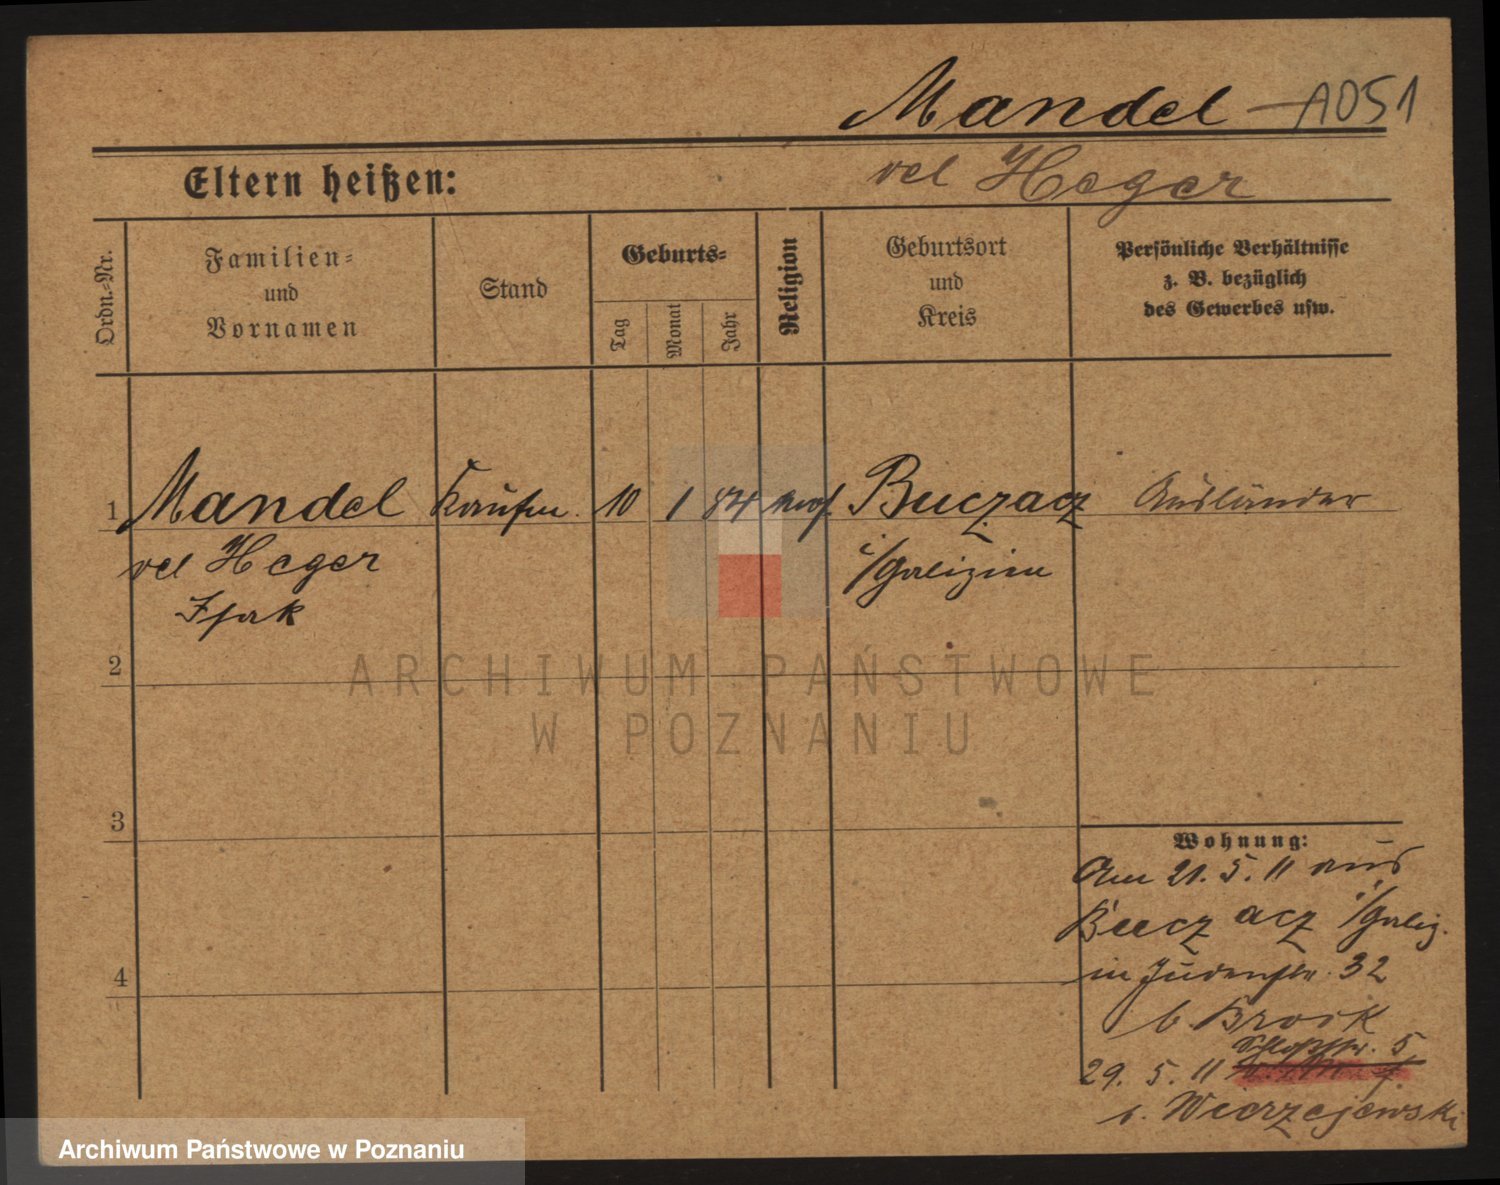 Mandel - A051
Eltern heißen:
vel Heger
Ordn.-Nr.
Familien-
und
Vornamen
Stand
Geburts-
Tag
Monat
Jahr
Religion
Geburtsort
und
Kreis
Persönliche Verhältnisse
z. B. bezüglich
des Gewerbes usw.
1 Mandel Kaufm. 10 1 84 mos. Buczacz Ausländer
vel Heger i/Galizien
Isak
2
ARCHIWUM PAŃSTWOWE
W POZNANIU
3
Wohnung:
Am 21. 5. 11 aus
Buczacz i/Galiz.
in Judenstr. 32
b Brock
Schloßstr. 5
29. 5. 11
b. Wierzejewski
4
Archiwum Państwowe w Poznaniu